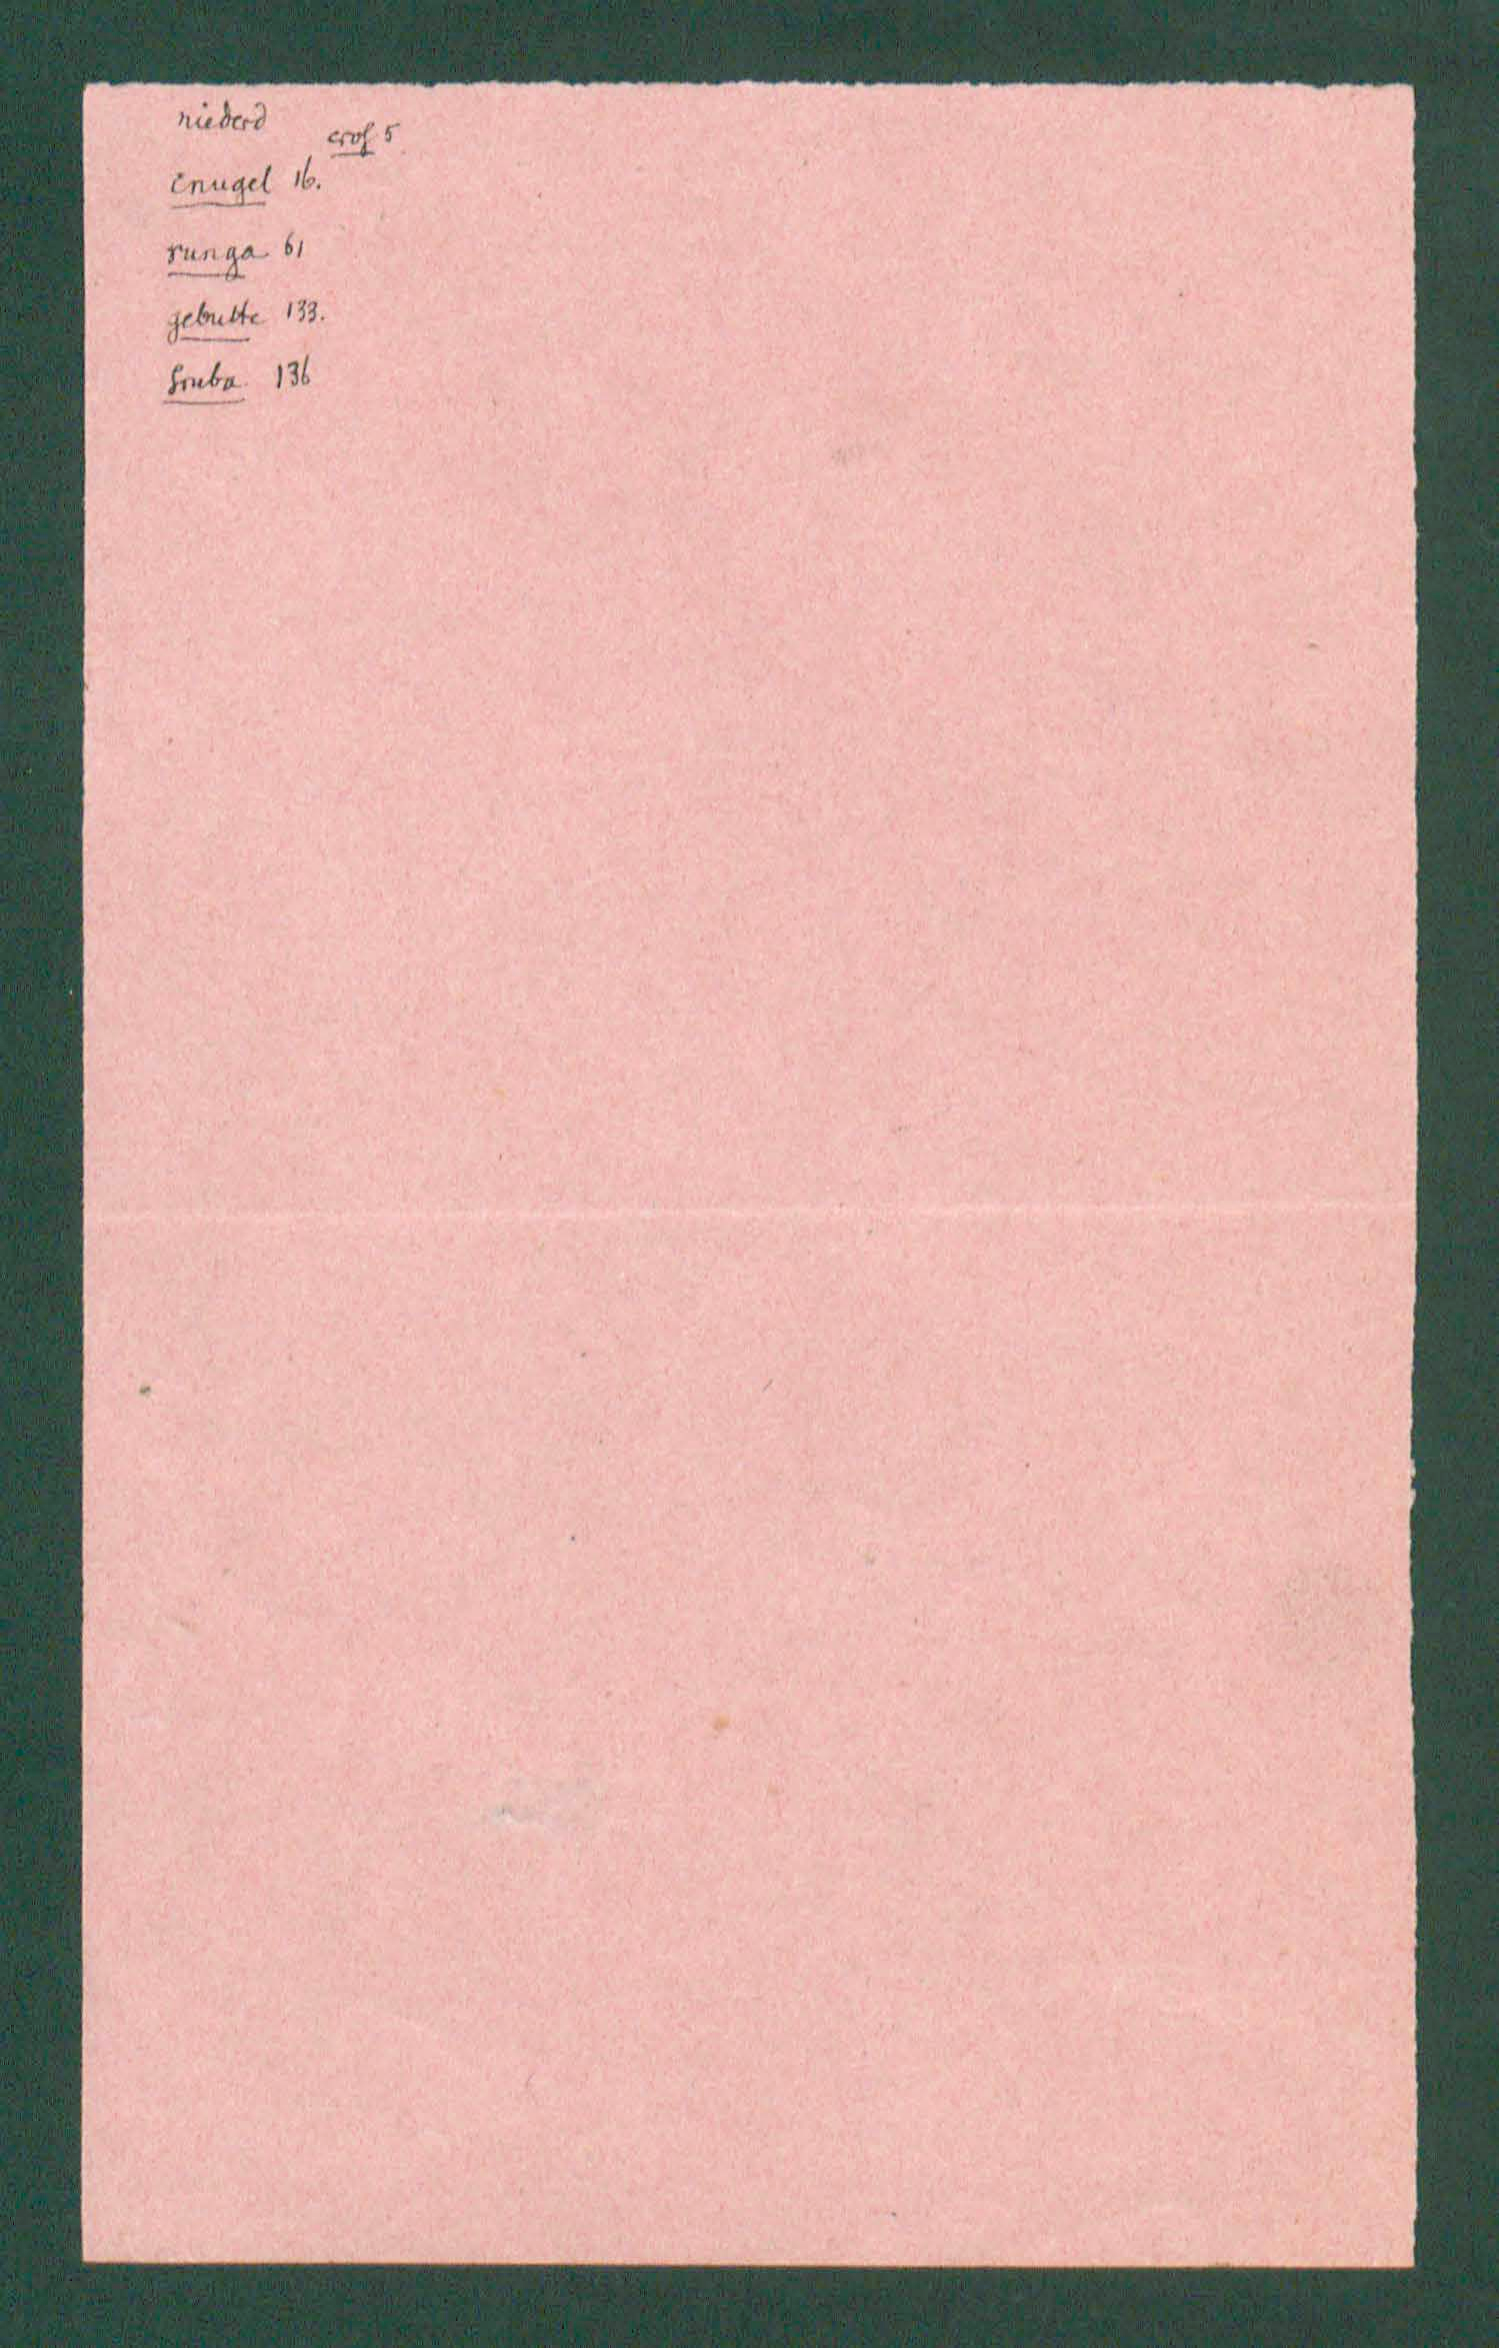 niederd
crof 5
cnugel 16.
runga 61
gebutte 133.